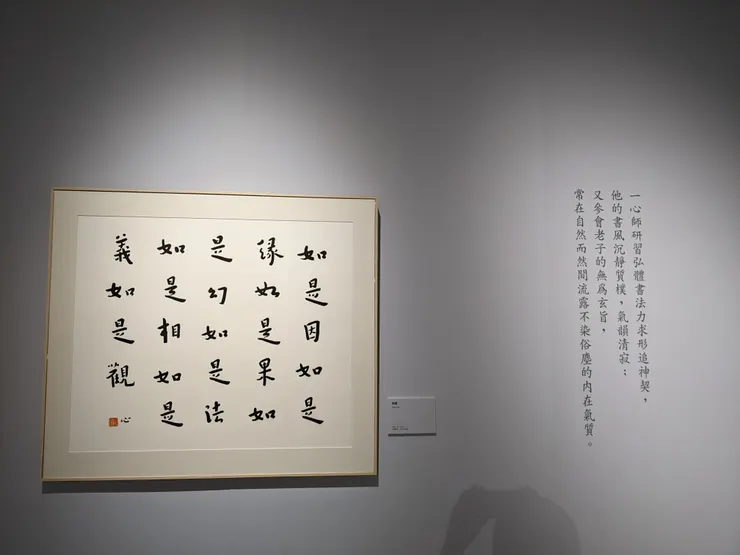 如是因如是
緣如是果如
是幻如是法
如是相如是
義如是觀
心
一心師研習弘體書法力求形追神契，
他的書風沉靜質樸，氣韻清寂；
又參會老子的無爲玄旨，
常在自然而然間流露不染俗塵的內在氣質。